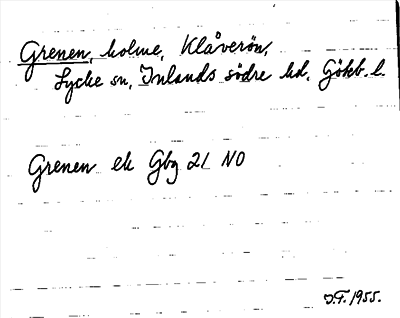 Grenen, holme, Klåverön,
Lycke sn, Inlands södre hd, Götb. l.
Grenen ek Gbg 21 NO
J.F. 1955.